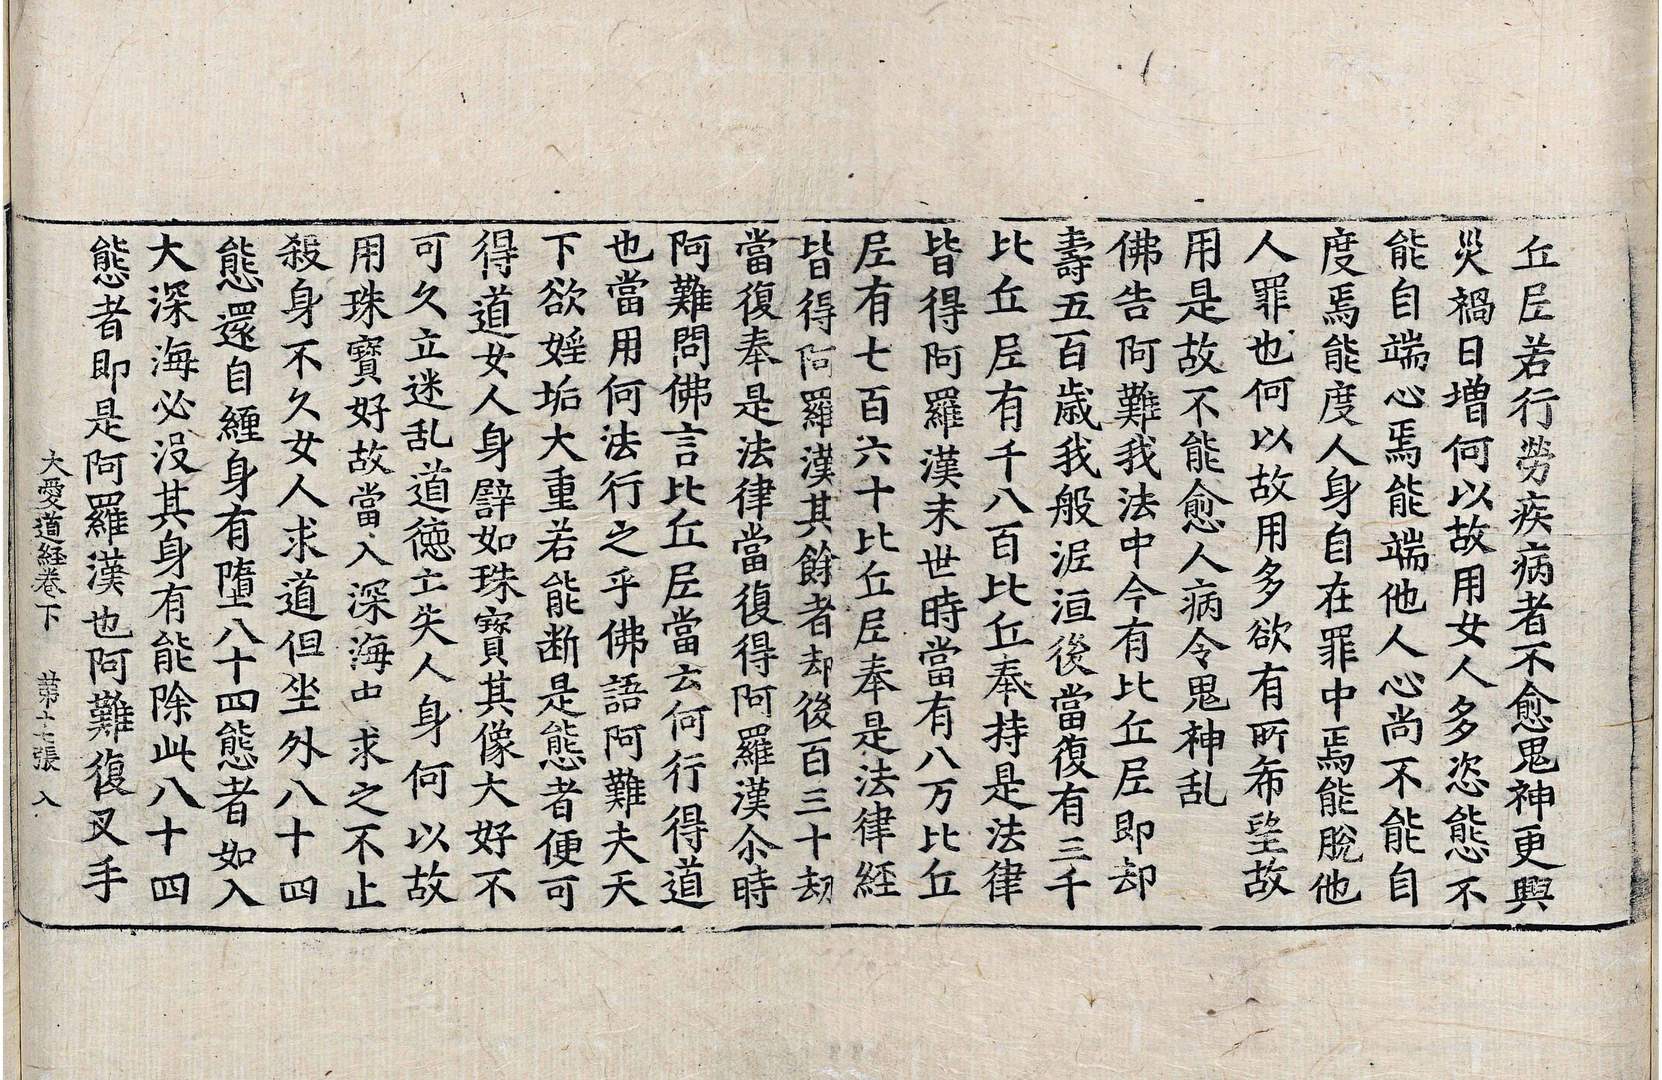 丘尼若行勞疾病者不愈鬼神更興
災禍日增何以故用女人多恣態不
能自端心焉能端他人心尚不能自
度焉能度人身自在罪中焉能脫他
人罪也何以故用多欲有所希望故
用是故不能愈人病令鬼神乱
佛告阿難我法中今有比丘尼即却
壽五百歲我般泥洹後當復有三千
比丘尼有千八百比丘奉持是法律
皆得阿羅漢末世時當有八万比丘
尼有七百六十比丘尼奉是法律經
皆得阿羅漢其餘者却後百三十劫
當復奉是法律當復得阿羅漢尒時
阿難問佛言比丘尼當云何行得道
也當用何法行之乎佛語阿難夫天
下欲婬垢大重若能断是態者便可
得道女人身譬如珠寶其像大好不
可久立迷乱道德亡失人身何以故
用珠寶好故當入深海中求之不止
殺身不久女人求道但坐外八十四
態還自纏身有墮八十四態者如入
大深海必没其身有能除此八十四
態者即是阿羅漢也阿難復叉手
大愛道經卷下 第十七張 入